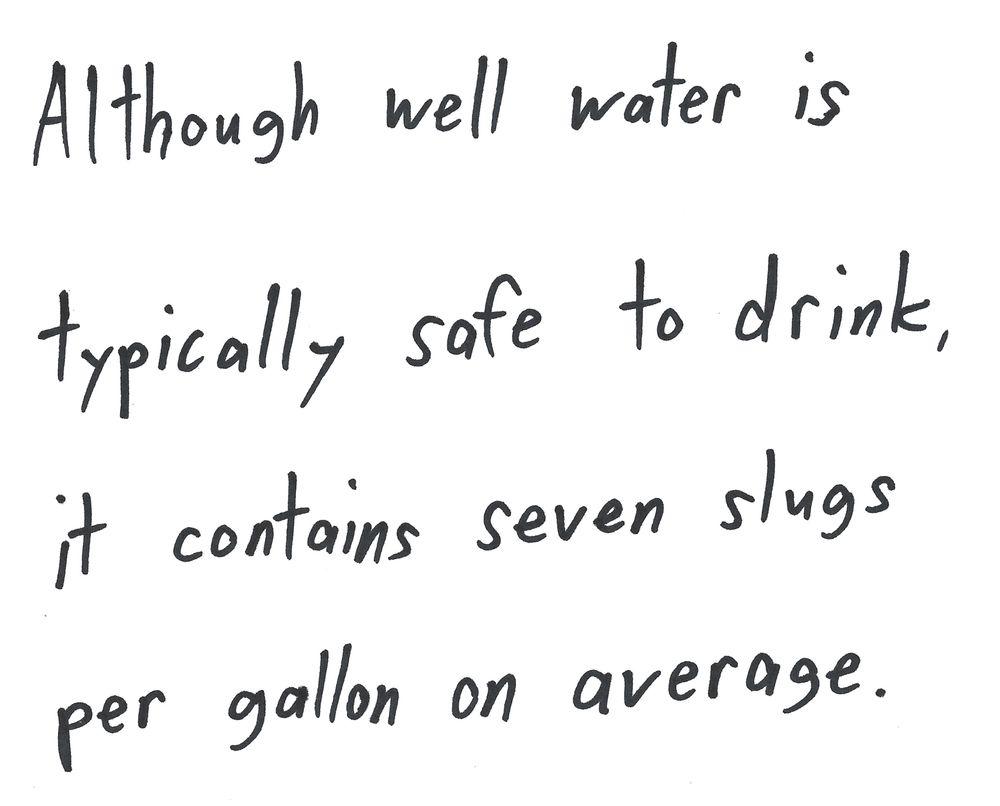 Although well water is
typically safe to drink,
it contains seven slugs
per gallon on average.